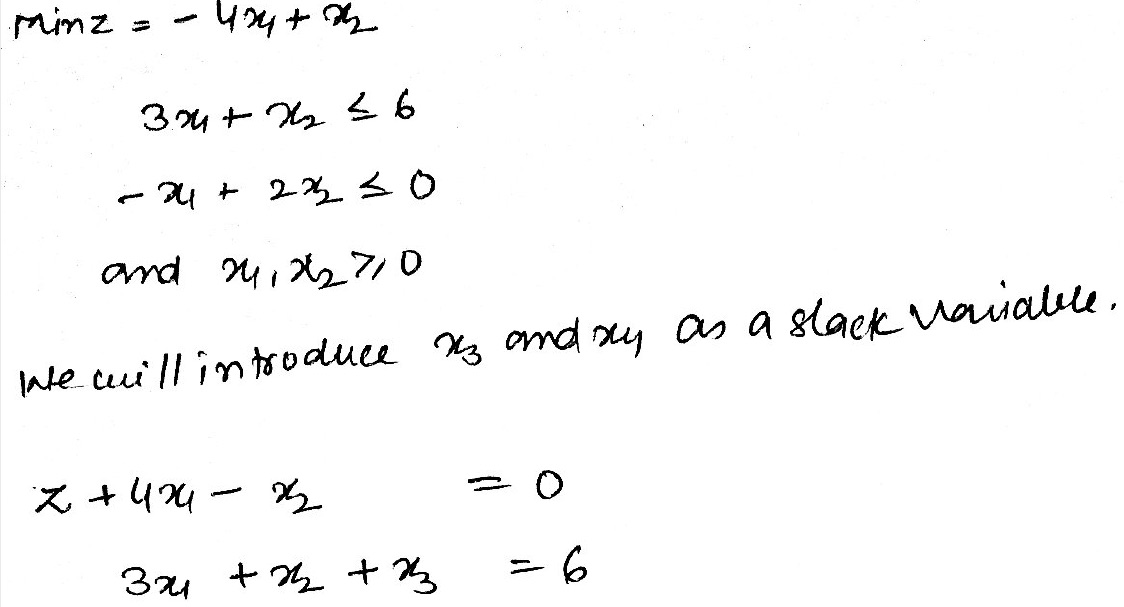 min z = - 4x₁ + x₂
3x₁ + x₂ ≤ 6
- x₁ + 2x₂ ≤ 0
and x₁, x₂ ≥ 0
We will introduce x₃ and x₄ as a slack variable.
z + 4x₁ - x₂ = 0
3x₁ + x₂ + x₃ = 6